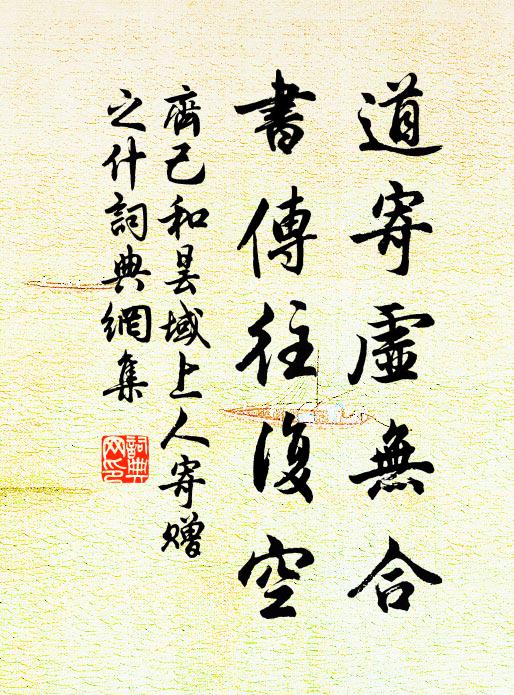 道寄虛無合
書傳往復空
齊己和曇域上人寄贈
之什詞典網集
詞典网印